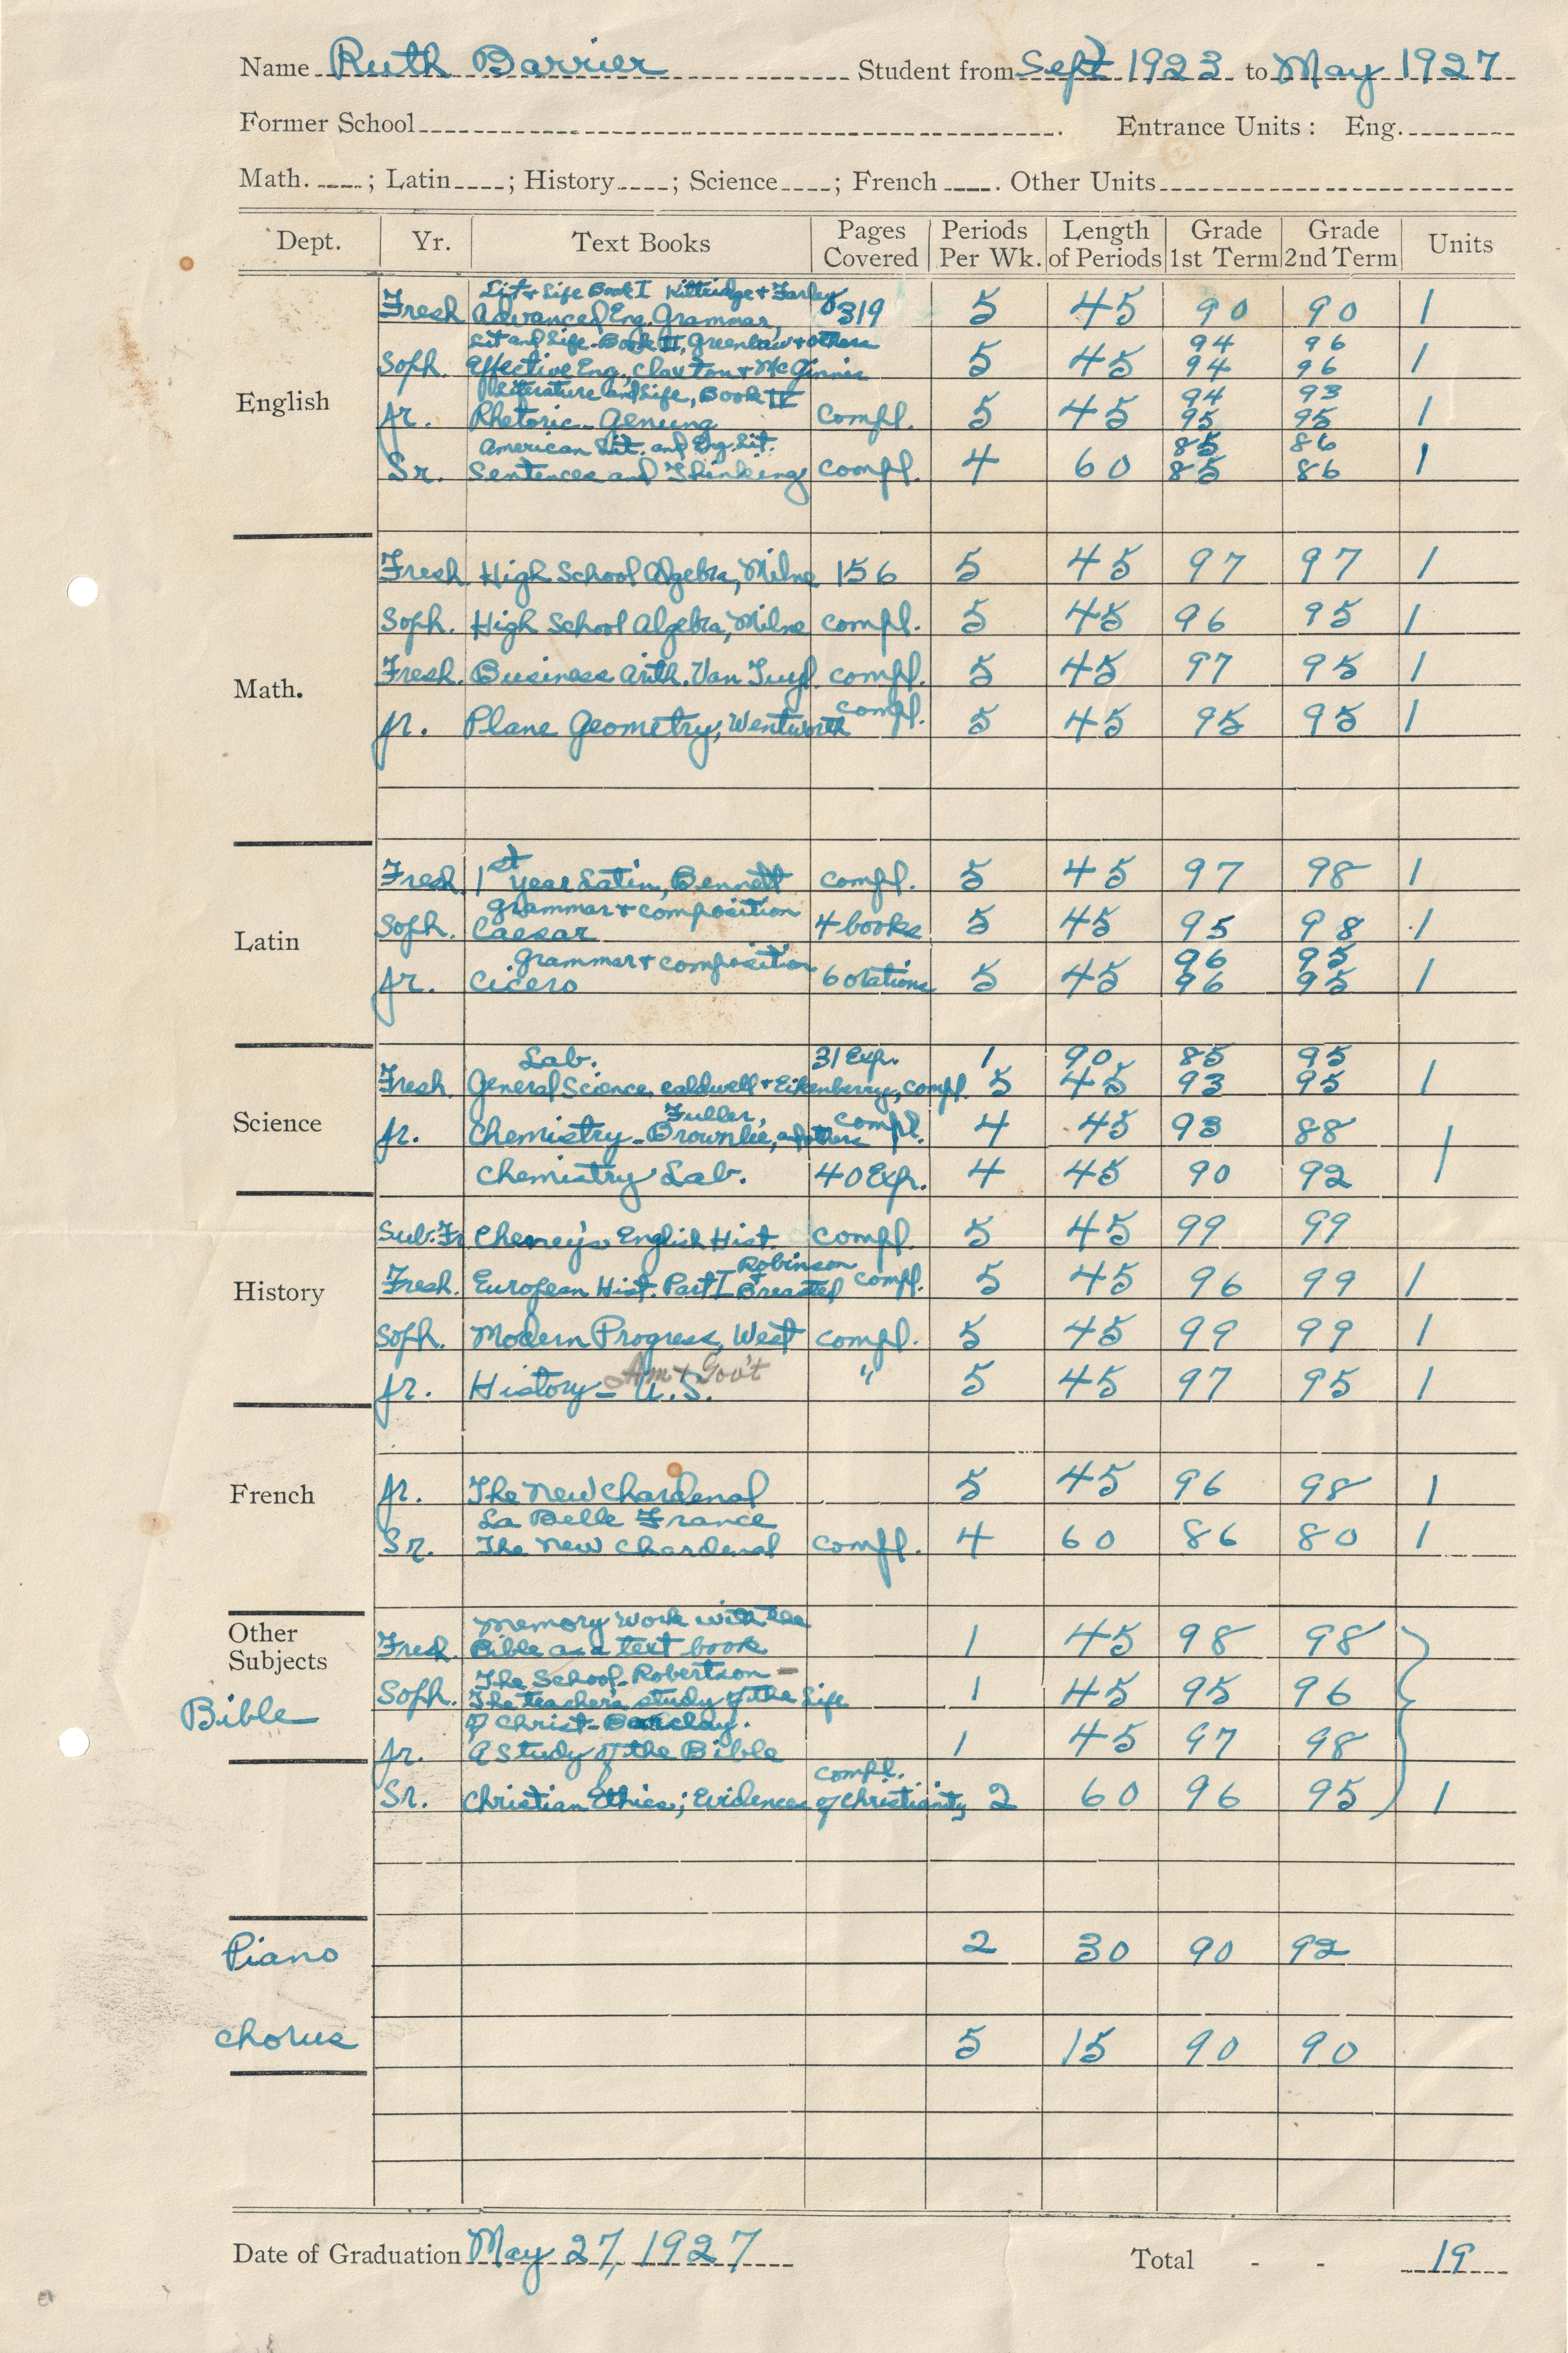 Name Ruth Barrier Student from Sept 1923 to May 1927
Former School . Entrance Units : Eng.
Math. ; Latin ; History ; Science ; French . Other Units
Dept. Yr. Text Books Pages Covered Periods Per Wk. Length of Periods Grade 1st Term Grade 2nd Term Units
English
Lit & Life Book I Kittridge & Farley
Fresh Advanced Eng. Grammar, 319 5 45 90 90 1
Lit and Life - Book II, Greenlaw & others 94 96
Soph. Effective Eng., Claxton & McGinnis 5 45 94 96 1
Literature and Life, Book IV 94 93
Jr. Rhetoric - Genung Compl. 5 45 95 95 1
American Lit. and Eng. Lit. 85 86
Sr. Sentences and Thinking compl. 4 60 85 86 1
Math.
Fresh High School Algebra, Milne 156 5 45 97 97 1
Soph. High School Algebra, Milne compl. 5 45 96 95 1
Fresh. Business Arith. Van Tuyl compl. 5 45 97 95 1
Jr. Plane Geometry, Wentworth compl. 5 45 95 95 1
Latin
Fresh. 1st year Latin, Bennett compl. 5 45 97 98 1
grammar & composition
Soph. Caesar 4 books 5 45 95 98 1
grammar & composition 96 95
Jr. Cicero 6 orations 5 45 96 95 1
Science
Lab. 31 Exp. 1 90 85 95
Fresh. General Science, Caldwell & Eikenberry, compl. 5 45 93 95 1
Fuller,
Jr. Chemistry - Brownlee, and others compl. 4 45 93 88 1
Chemistry Lab. 40 Exp. 4 45 90 92
History
Sub-Fr. Cheney's English Hist. compl. 5 45 99 99
Robinson
Fresh. European Hist. Part I & Breasted compl. 5 45 96 99 1
Soph. Modern Progress, West compl. 5 45 99 99 1
Am & Gov't
Jr. History - U.S. " 5 45 97 95 1
French
Jr. The New Chardenal 5 45 96 98 1
La Belle France
Sr. The New Chardenal compl. 4 60 86 80 1
Other Subjects
Bible
Memory work with the
Fresh. Bible as a text book 1 45 98 98
The School - Robertson -
Soph. The teacher's study of the Life 1 45 95 96
of Christ - Barclay.
Jr. A Study of the Bible 1 45 97 98
compl.
Sr. Christian Ethics; Evidences of Christianity 2 60 96 95 1
Piano 2 30 90 92
Chorus 5 15 90 90
Date of Graduation May 27, 1927 Total - - 19